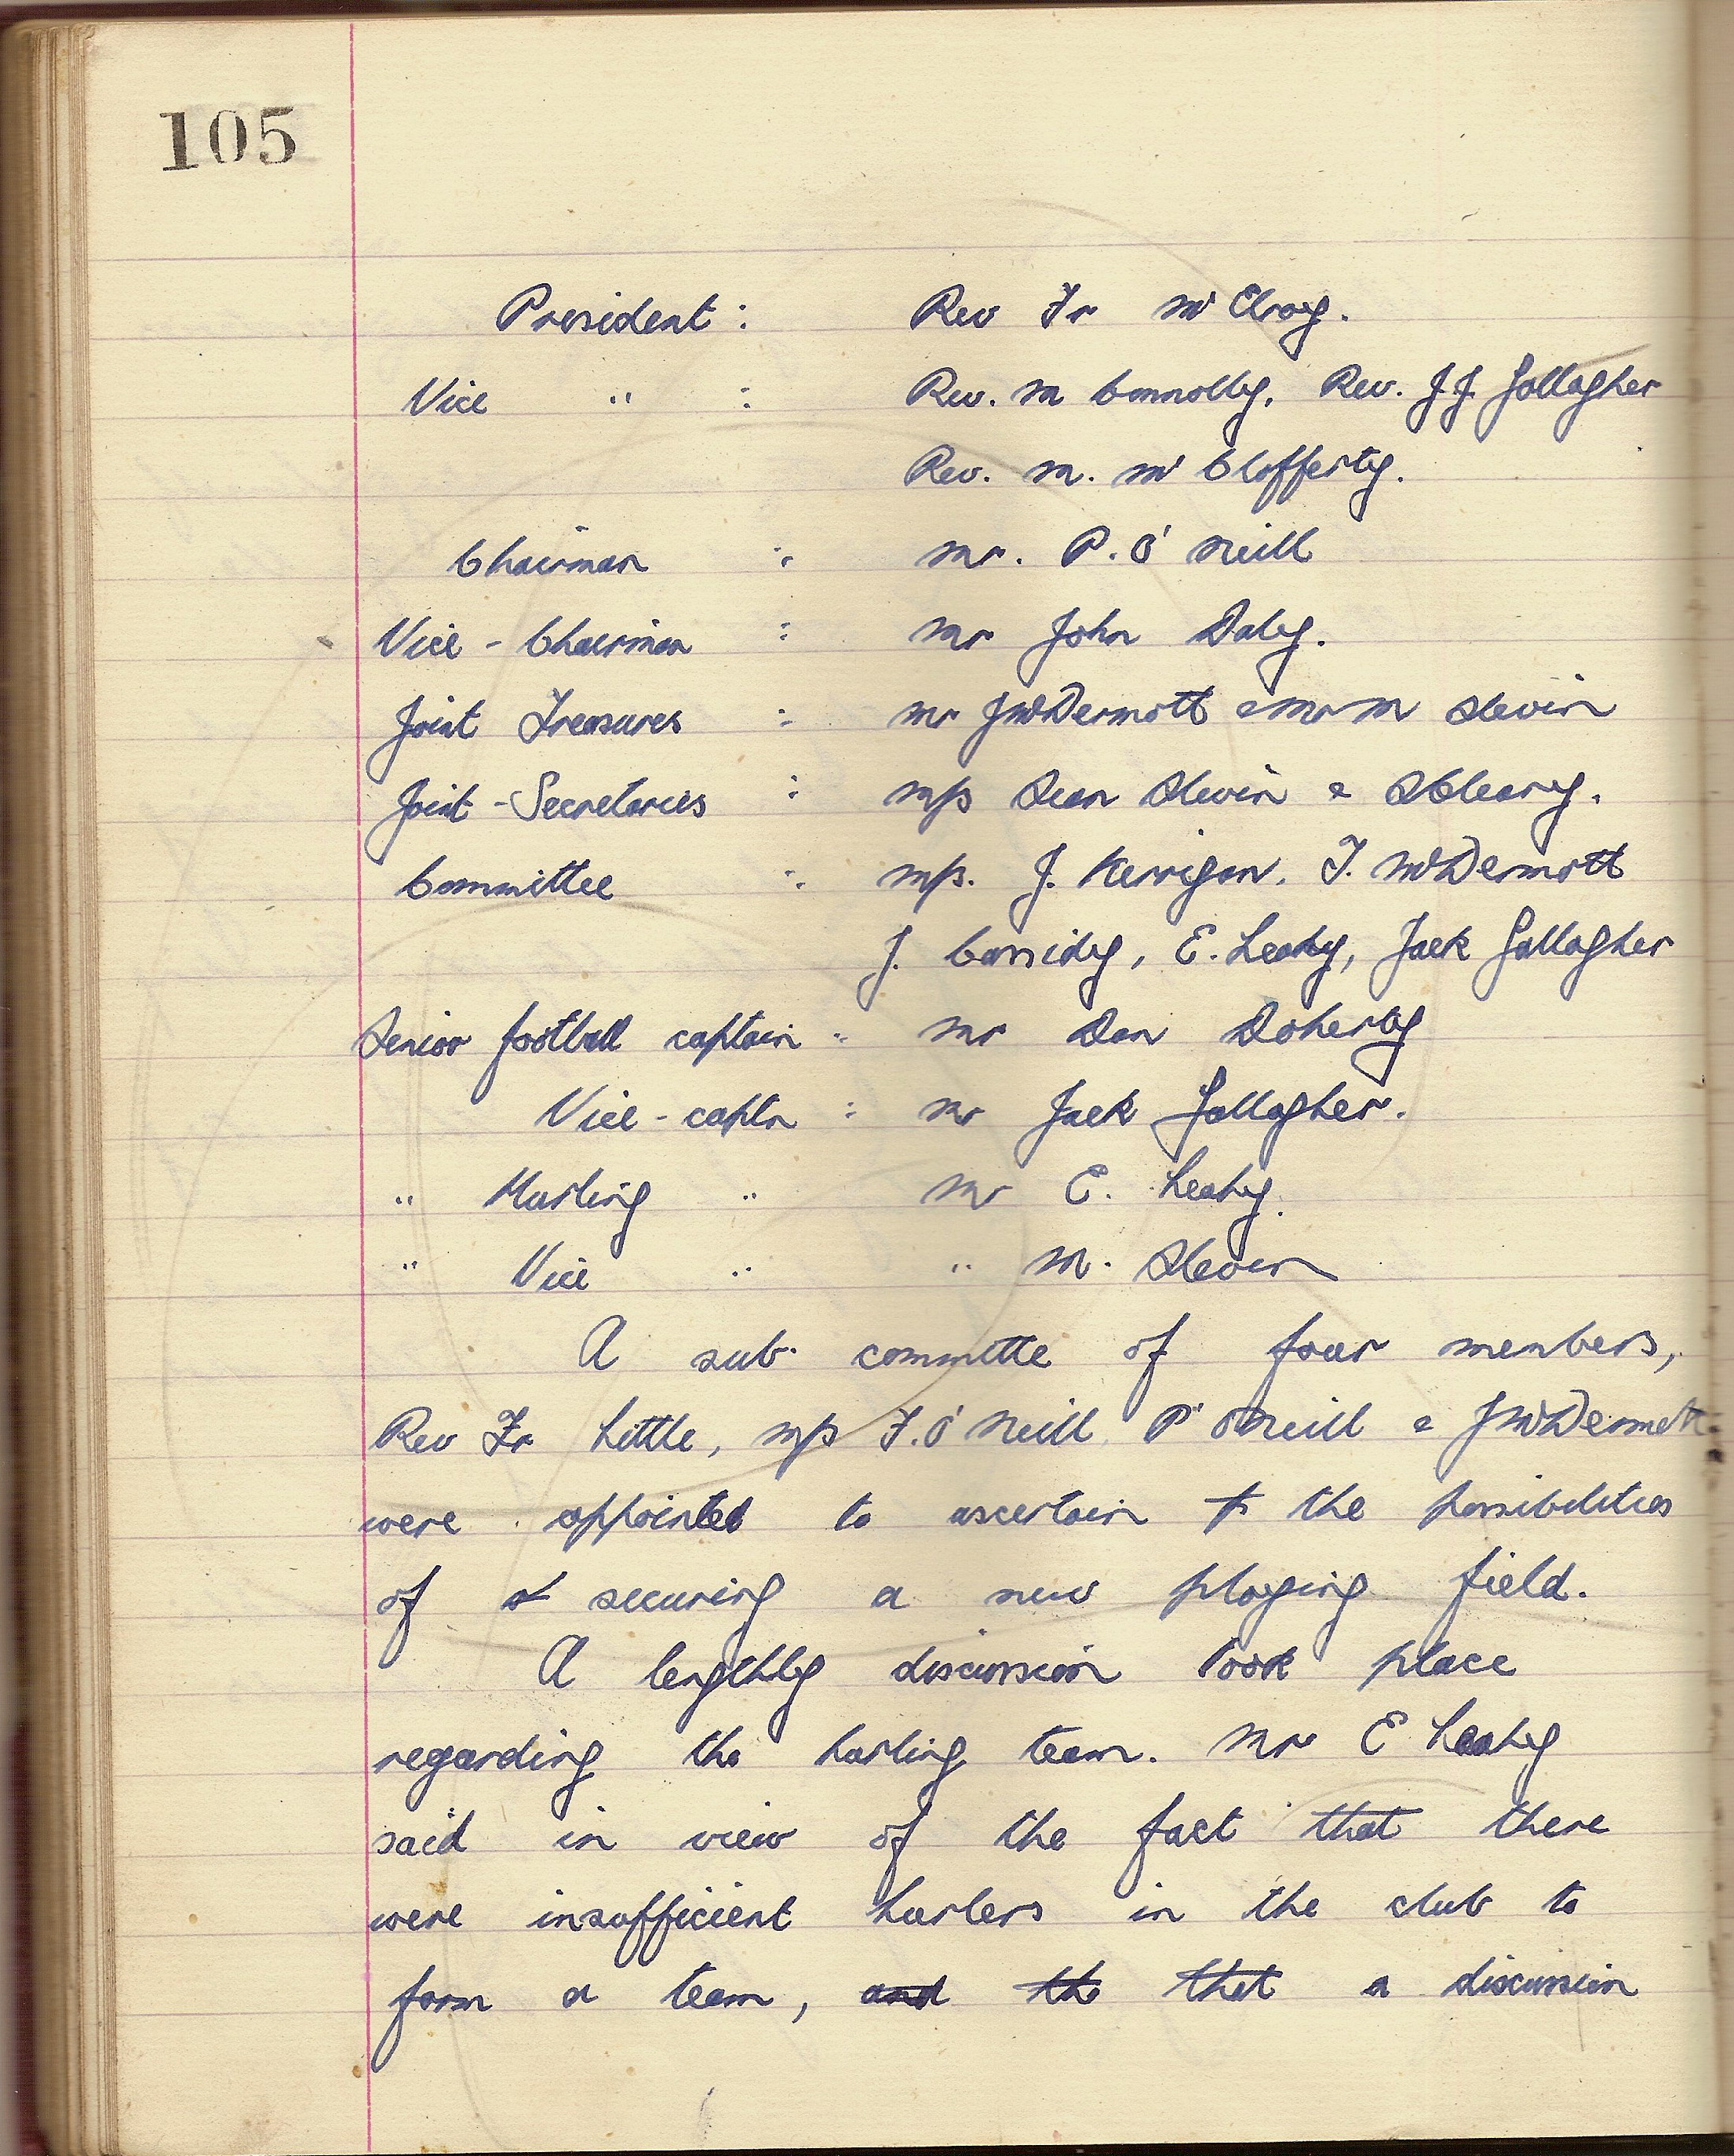 105
President : Rev Fr McElroy.
Vice " : Rev. M Connolly, Rev. J.J. Gallagher
Rev. M. Mc Clafferty.
Chairman : Mr. P. O'Neill
Vice - Chairman : Mr John Daly.
Joint Treasures : Mr J McDermott & Mr M Slevin
Joint - Secretaries : Mrs Sean Slevin & S Cleary.
Committee : Mrs. J. Kerrigan, T. McDermott
J. Cassidy, E. Leahy, Jack Gallagher
Senior football captain : Mr Dan Doherty
Vice - captn : Mr Jack Gallagher.
" Hurling " Mr E. Leahy.
" Vice " " M. Slevin
A sub committe of four members,
Rev Fr Little, Mrs F. O'Neill, P O'Neill & J McDermott
were appointed to ascertain the possibilities
of securing a new playing field.
A lengthly discussion took place
regarding the hurling team. Mr E Leahy
said in view of the fact that there
were insufficient hurlers in the club to
form a team, and th that a discussion